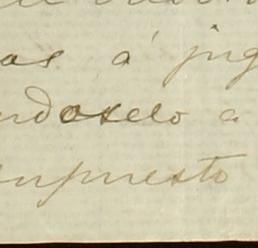 as á jug
ndoselo a
mpuesto